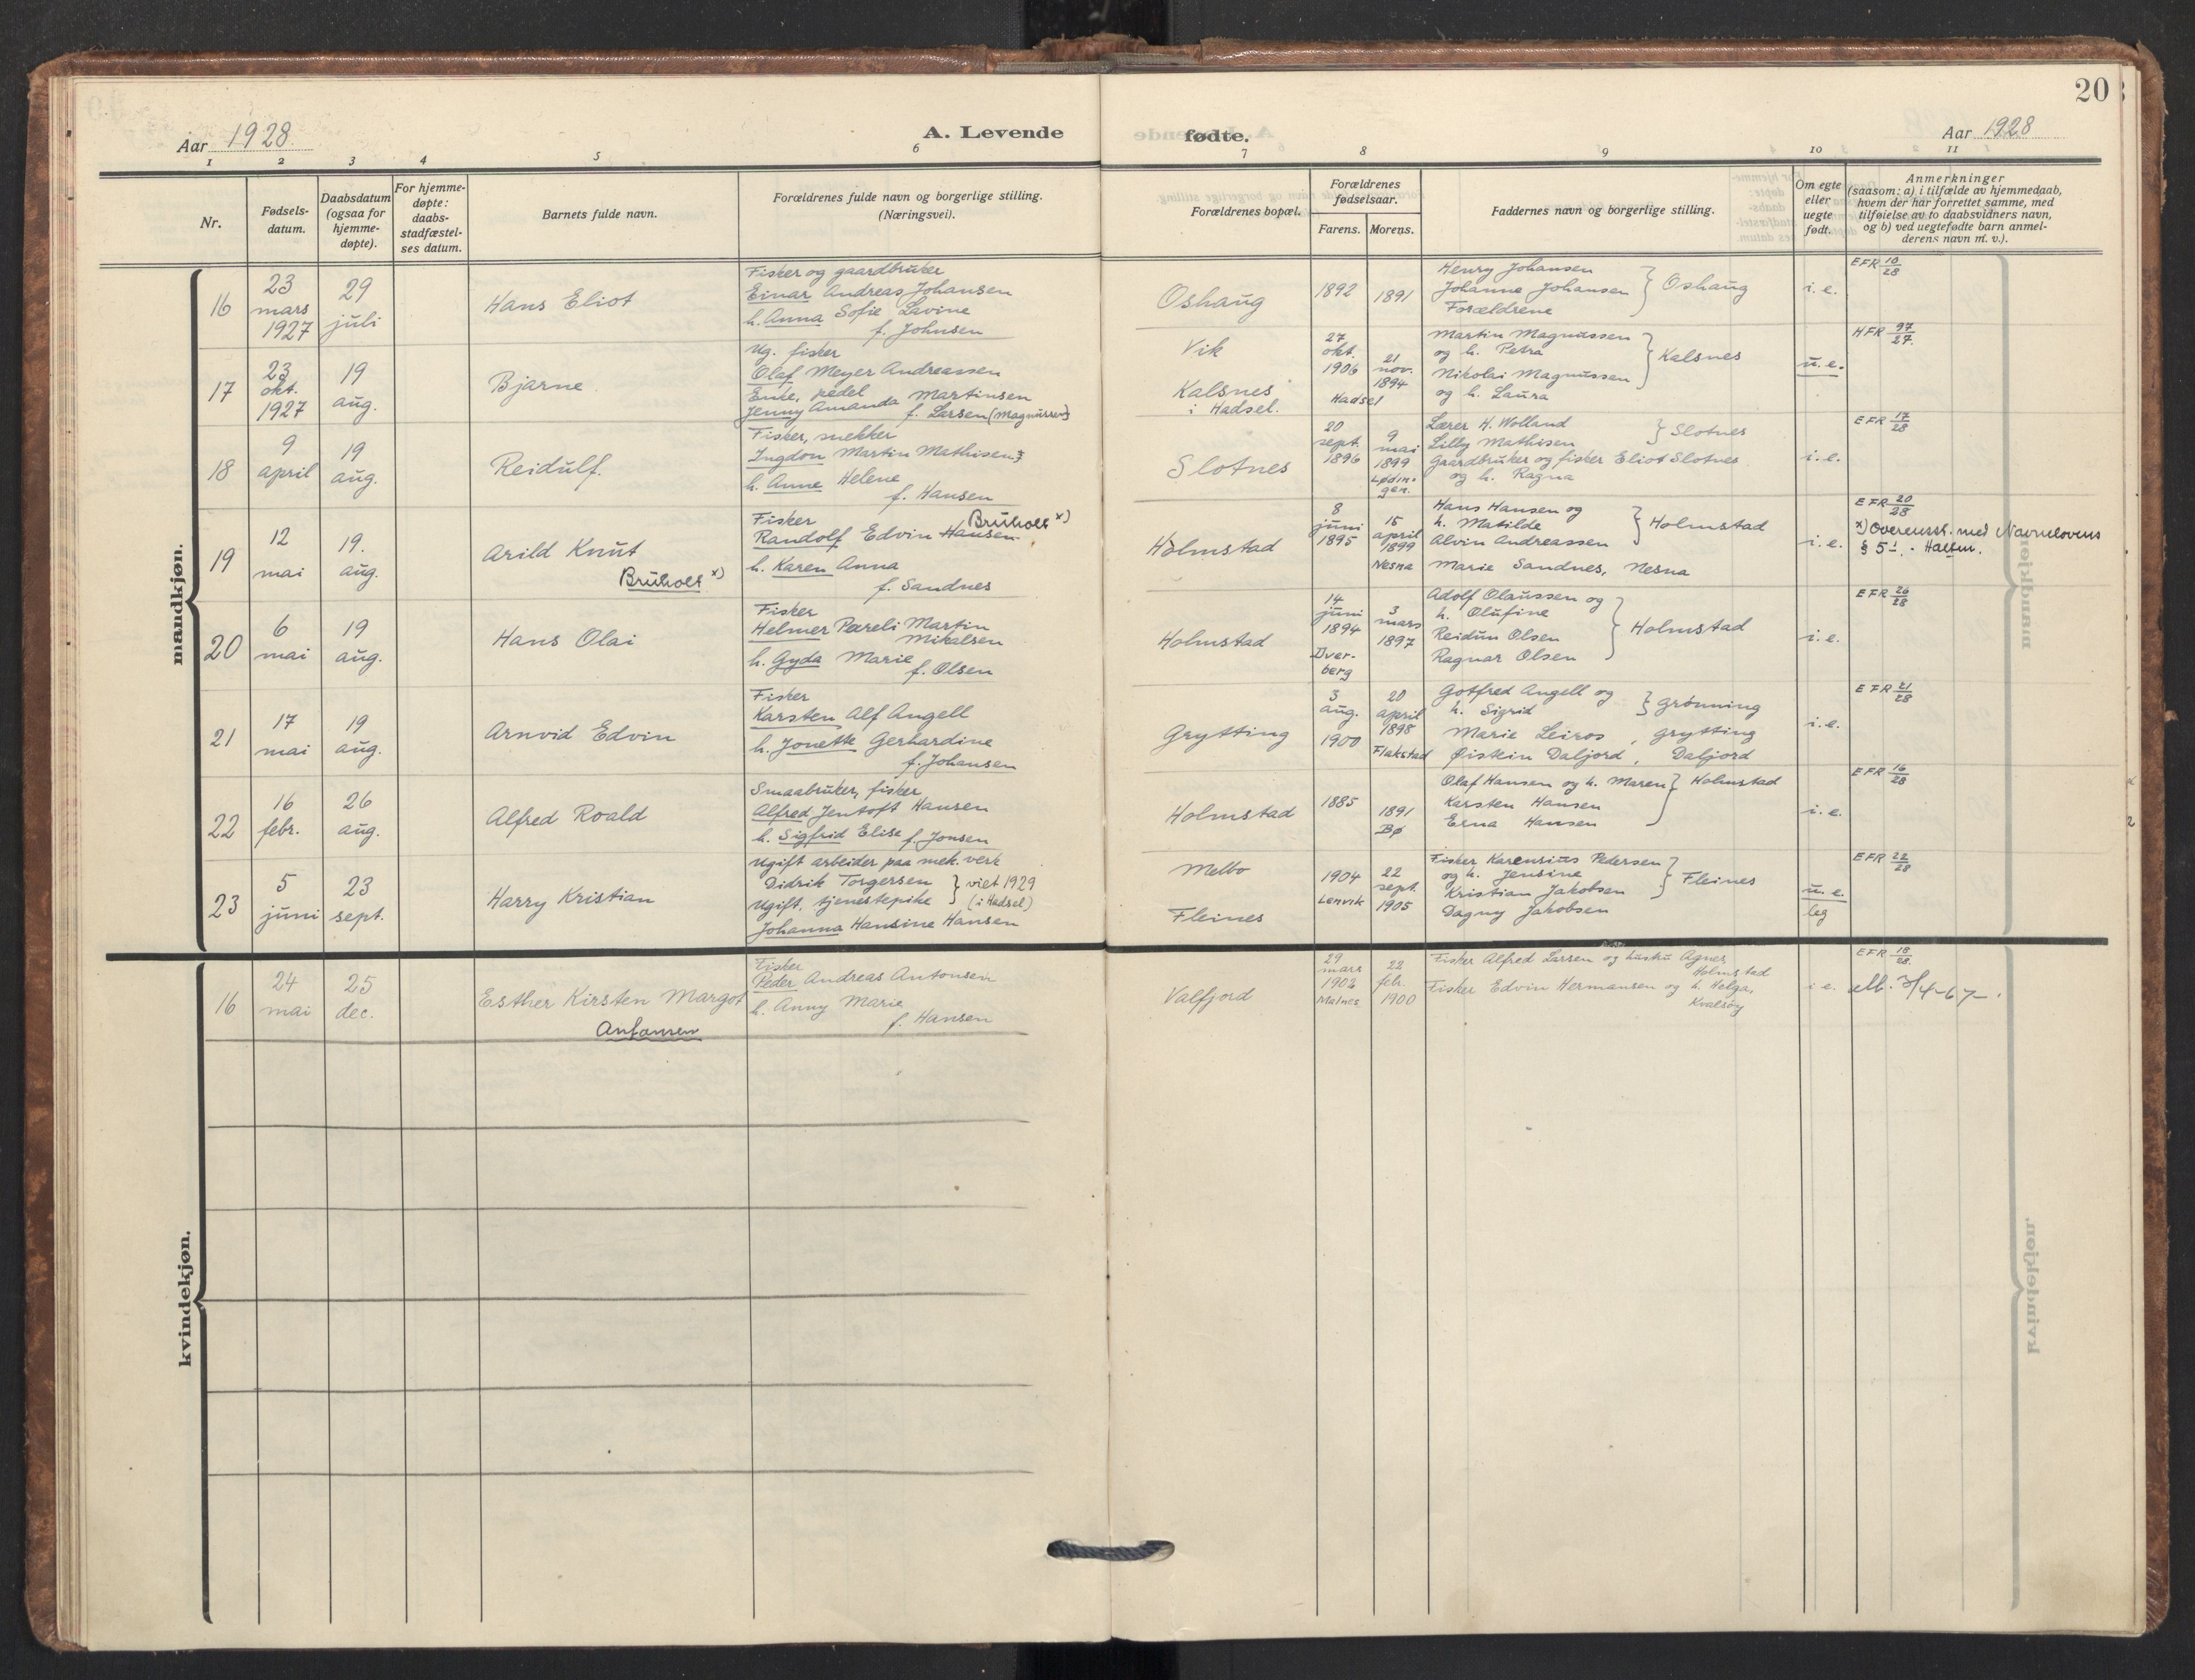 20
Aar 1928
A. Levende
fødte.
Aar 1928
1 2 3 4 5 6 7 8 9 10 11
Nr.
Fødsels-
datum.
Daabsdatum
(ogsaa for
hjemme-
døpte).
For hjemme-
døpte:
daabs-
stadfæstel-
ses datum.
Barnets fulde navn.
Forældrenes fulde navn og borgerlige stilling.
(Næringsvei).
Forældrenes bopæl.
Forældrenes
fødselsaar.
Farens. Morens.
Faddernes navn og borgerlige stilling.
Om egte
eller
uegte
født.
Anmerkninger
(saasom: a) i tilfælde av hjemmedaab,
hvem der har forrettet samme, med
tilføielse av to daabsvidners navn,
og b) ved uegtefødte barn anmel-
derens navn m. v.).
mandkjøn.
16
23
mars
1927
29
juli
Hans Eliot
Fisker og gaardbruker
Einar Andreas Johansen
h. Anna Sofie Lavine
f. Johnsen
Oshaug
1892
1891
Henry Johansen
Johanne Johansen
Forældrene
Oshaug
i. e.
EFR 10/28
17
23
okt.
1927
19
aug.
Bjarne
Ug. fisker
Olaf Meyer Andreassen
Enke, Martinsen
Jenny Amanda f. Larsen (Magnussen)
Vik
Kalsnes
i Hadsel.
27
okt.
1906
21
nov.
1894
Hadsel
Martin Magnussen
og h. Petra
Nikolai Magnussen
og h. Laura
Kalsnes
u. e.
HFR 97/27.
18
9
april
19
aug.
Reidulf.
Fisker, snekker
Ingdon Martin Mathisen
h. Anne Helene
f. Hansen
Slotnes
20
sept.
1896
9
mai
1899
Lødin-
gen.
Lærer H. Wolland
Lilly Mathisen
Slotnes
Gaardbruker og fisker Eliot Slotnes
og h. Ragna
i. e.
EFR 17/28
19
12
mai
19.
aug.
Arild Knut
Bruholt x)
Fisker Bruholt x)
Randolf Edvin Hansen
h. Karen Anna
f. Sandnes
Holmstad
8
juni
1895
15
april
1899
Nesna
Hans Hansen og
h. Matilde
Alvin Andreassen
Holmstad
Marie Sandnes, Nesna
i. e.
EFR 20/28
x) Overensst. med Navnelovens
§ 5 1. -
20
6
mai
19
aug.
Hans Olai
Fisker
Helmer Pareli Martin
Mikalsen
h. Gyda Marie
f. Olsen
Holmstad
14
juni
1894
Dver-
berg
3
mars
1897
Adolf Olaussen og
h. Olufine
Reidun Olsen
Ragnar Olsen
Holmstad
i. e.
EFR 26/28
21
17
mai
19
aug.
Arnvid Edvin
Fisker
Karsten Alf Angell
h. Jonette Gerhardine
f. Johansen
Grytting
3
aug.
1900
20
april
1898
Flakstad
Gotfred Angell og
h. Sigrid
Grønning
Marie Leiros, Grytting
Øistein Daljord, Daljord
i. e.
EFR 21/28
22
16
febr.
26
aug.
Alfred Roald
Smaabruker, fisker
Alfred Jentoft Hansen
h. Sigfrid Elise f. Jonsen
Holmstad
1885
1891
Bø
Olaf Hansen og h. Maren
Karsten Hansen
Erna Hansen
Holmstad
i. e.
EFR 16/28
23
5
juni
23
sept.
Harry Kristian
Ugift arbeider paa mek. verk
Didrik Torgersen
Ugift, tjenestepike
Johanna Hansine Hansen
viet 1929
(i Hadsel)
Melbo
Fleines
1904
Lenvik
22
sept.
1905
Fisker Karensius Pedersen
og h. Jensine
Kristian Jakobsen
Dagny Jakobsen
Fleines
u. e.
leg
EFR 22/28
kvindekjøn.
16
24
mai
25
dec.
Esther Kirsten Margot
Antonsen
Fisker
Peder Andreas Antonsen
h. Anny Marie
f. Hansen
Valfjord
29
mars
1902
Malnes
22
feb.
1900
Fisker Alfred Larsen og hustru Agnes,
Holmstad
Fisker Edvin Hermansen og h. Helga,
Kvalsøy
i e.
EFR 18/28.